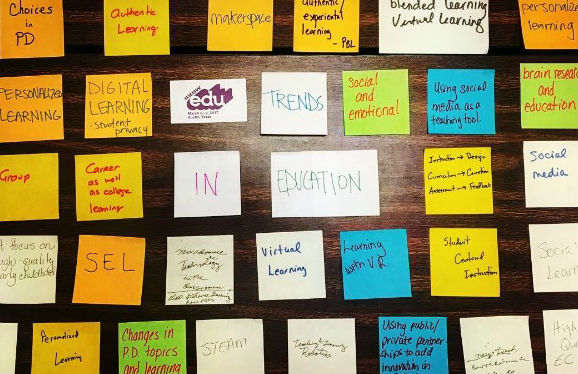 Choices
in
PD
Authentic
Learning
makerspace
authentic/
experiential
learning
- PBL
blended learning
Virtual Learning
personalize
learning
PERSONALIZED
LEARNING
DIGITAL
LEARNING
- student
privacy
edu
March 6-9, 2017
Austin, Texas
TRENDS
Social
and
emotional
Using social
media as a
teaching tool
brain research
and
education
Group
Career
as well
as college
learning
IN
EDUCATION
Instruction → Design
Curriculum → Curation
Assessment → Feedback
Social
media
focus on
quality
early childhood
SEL
Technology
in the
classroom
Virtual
Learning
Learning
with V.R.
Student
Centered
Instruction
Social
Learn
Personalized
Learning
Changes in
P.D. topics
and learning
STEAM
Robotics
Using public/
private partner
ships to add
innovation in
High
Qu
EC